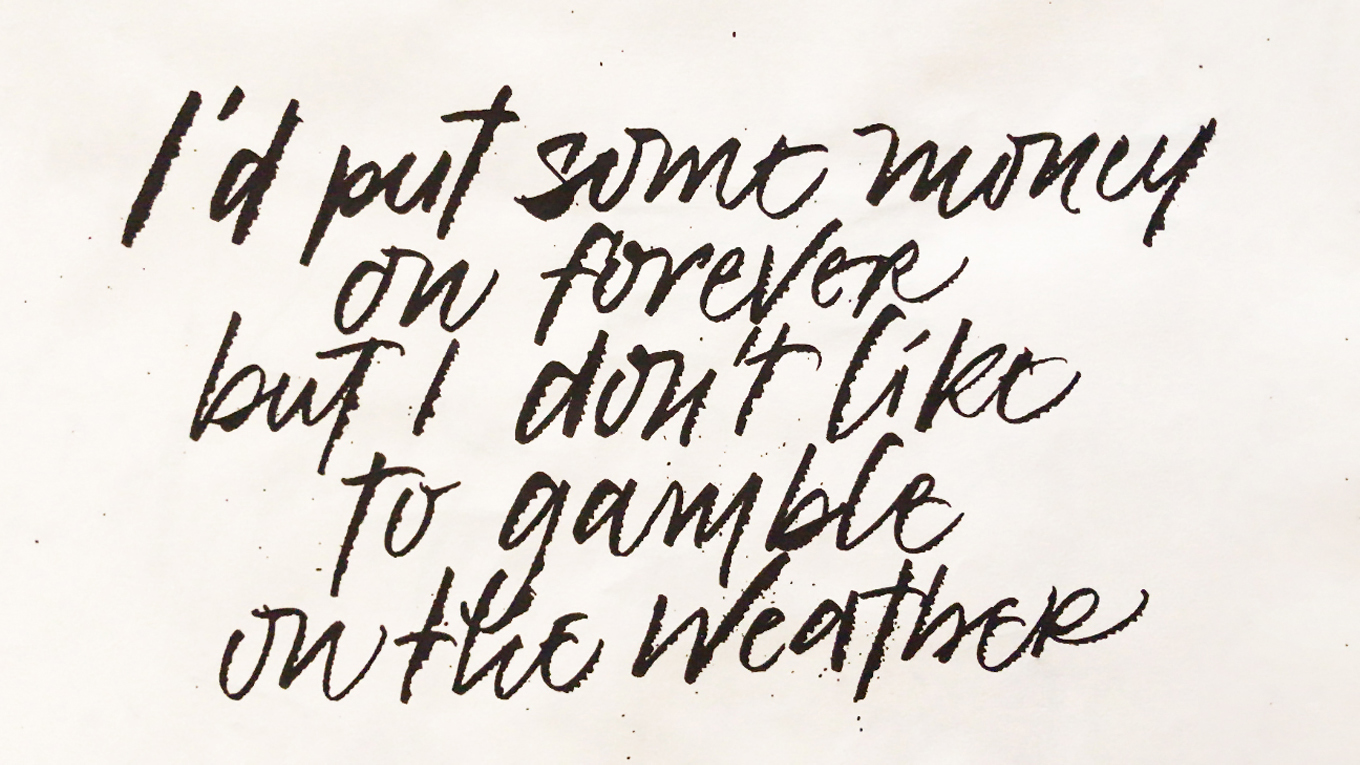 I'd put some money
on forever
but I don't like
to gamble
on the weather